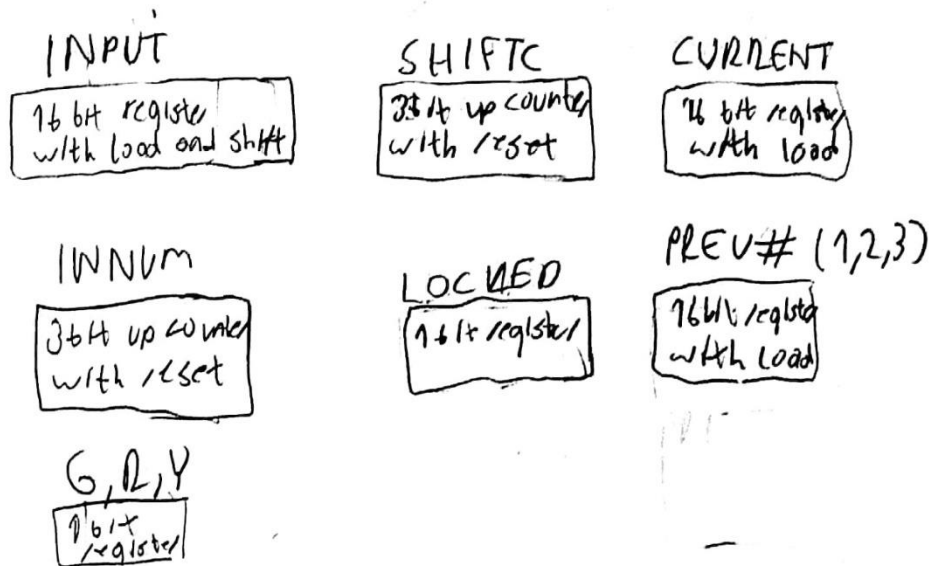 INPUT
16 bit register
with load and shift
SHIFTC
3bit up counter
with reset
CURRENT
16 bit register
with load
INNUM
3bit up counter
with reset
LOCKED
1bit register
PREV# (1,2,3)
16bit register
with load
G,R,Y
1bit
register